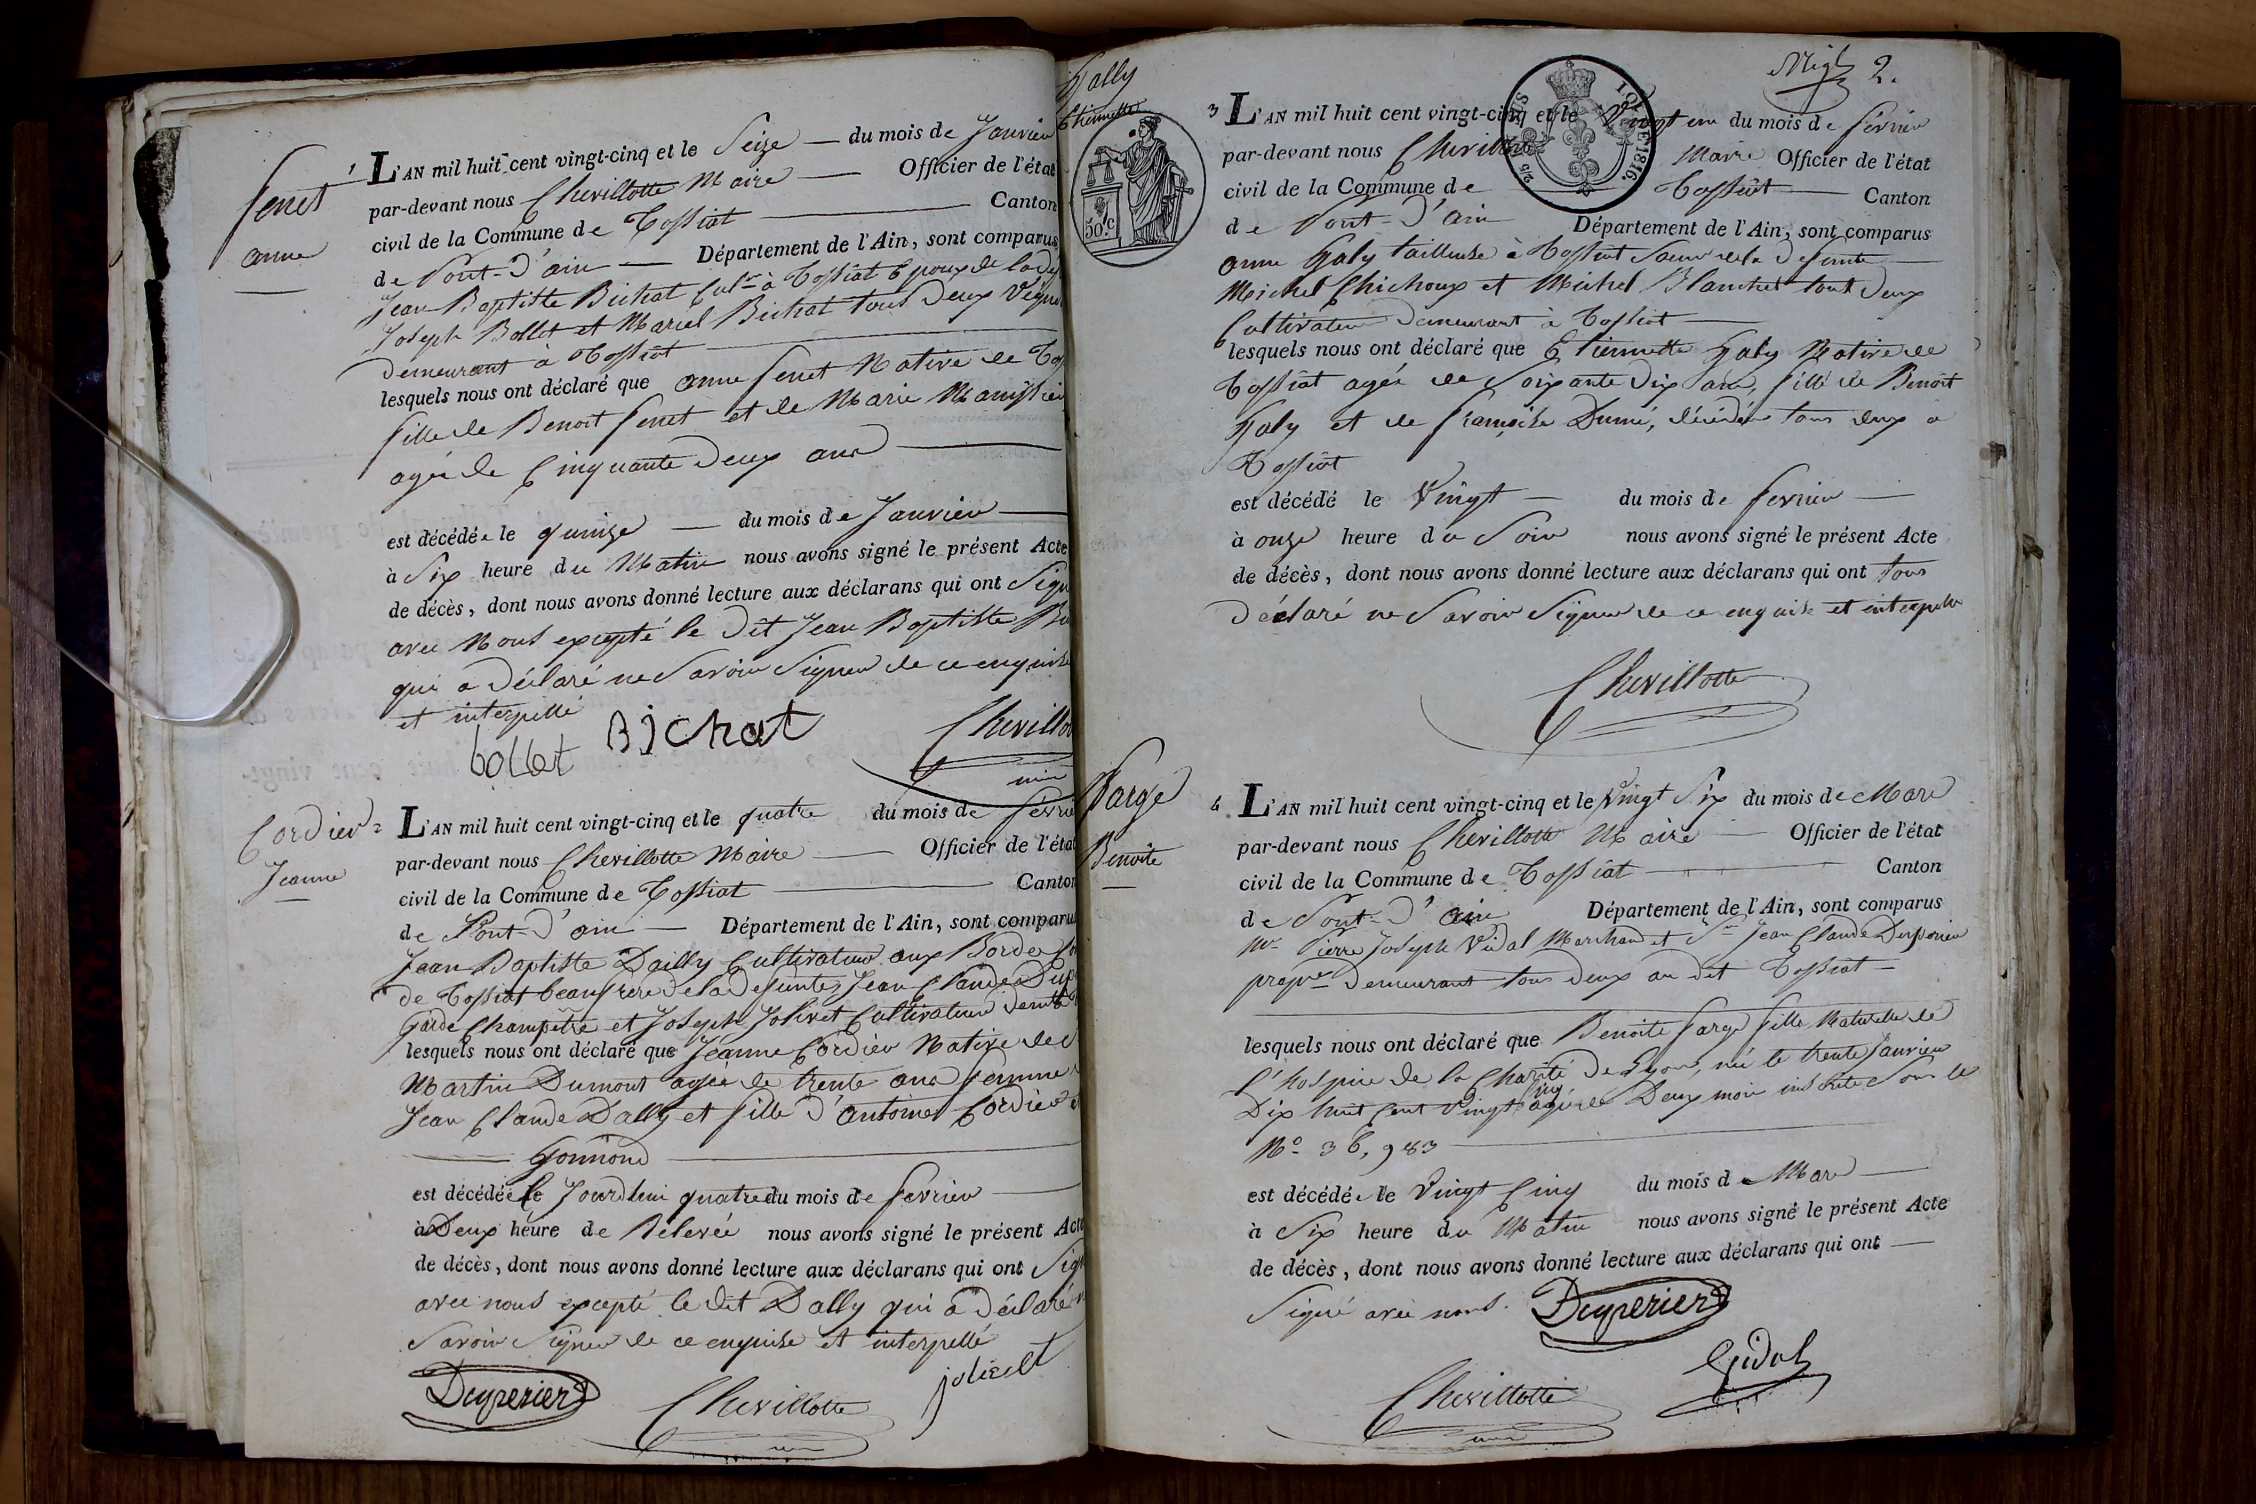 Fenet
anne
1 L'AN mil huit cent vingt-cinq et le Seize du mois de Janvier
par-devant nous Chevillotte Maire Officier de l'état
civil de la Commune de Tossiat Canton
de Pont-d'ain Département de l'Ain, sont comparus
Jean Baptiste Bichat à Tossiat Epoux de la
Joseph Bollet et Marcel Bichat tous Deux
Demeurant à Tossiat
lesquels nous ont déclaré que anne Fenet Native de
fille de Benoit Fenet et de Marie
agée de Cinquante Deux ans
est décédée le quinze du mois de Janvier
à Six heure du Matin nous avons signé le présent Acte
de décès, dont nous avons donné lecture aux déclarans qui ont
avec Nous excepté le dit Jean Baptiste
qui a Déclaré ne Savoir Signer de ce enquise
et interpellé
bollet BjChat
Cordier
Jeanne
2 L'AN mil huit cent vingt-cinq et le quatre du mois de
par-devant nous Chevillotte Maire Officier de l'état
civil de la Commune de Tossiat Canton
de Pont-d'ain Département de l'Ain, sont comparus
Jean Baptiste Dailly Cultivateur aux Bordes
de Tossiat beaufrere de la Defunte, Jean Claude
Garde Champêtre et Joseph Jolivet Cultivateur
lesquels nous ont déclaré que Jeanne Cordier Native de
Martin Dumont agée de trente ans femme
Jean Claude Dally et fille d'antoine Cordier
Gonnond
est décédée le Jourdhui quatre du mois de fevrier
à Deux heure de Relevée nous avons signé le présent Acte
de décès, dont nous avons donné lecture aux déclarans qui ont
avec nous excepté le dit Dally qui a Déclaré
Savoir Signer de ce enquise et interpellé
Deyperier Chevillotte jolivet
2.
Gally
Etiennette
50 c.
TIMBRE
LOI DE 1816.
3 L'AN mil huit cent vingt-cinq et le Vingt un du mois de fevrier
par-devant nous Chevillotte Maire Officier de l'état
civil de la Commune de Tossiat Canton
de Pont-d'ain Département de l'Ain, sont comparus
anne Galy tailleuse à Tossiat Soeur de la Defunte
Michel Chichoux et Michel Blanchet tout Deux
Cultivateur Demeurant à Tossiat
lesquels nous ont déclaré que Etiennette Galy Native de
Tossiat agée de Soixante Dix ans, fille de Benoit
Galy et de françoise Dumé, décédés tous deux a
Tossiat
est décédé le Vingt du mois de fevrier
à onze heure du Soir nous avons signé le présent Acte
de décès, dont nous avons donné lecture aux déclarans qui ont tous
Déclaré ne Savoir Signer de ce enquise et interpellé
Chevillotte
Farge
Benoite
4 L'AN mil huit cent vingt-cinq et le Vingt Six du mois de Mars
par-devant nous Chevillotte Maire Officier de l'état
civil de la Commune de Tossiat Canton
de Pont-d'ain Département de l'Ain, sont comparus
Mr Pierre Joseph Vidal Marchand et Sr Jean Claude Deyperier
propre Demeurant tous Deux au dit Tossiat
lesquels nous ont déclaré que Benoite farge fille Naturelle de
l'hospice de la Charité De Lyon, née le trente Janvier
Dix huit Cent Vingt Cinq agée de Deux mois inscrite Sous le
No. 36,983
est décédée le Vingt Cinq du mois de Mars
à Six heure du Matin nous avons signé le présent Acte
de décès, dont nous avons donné lecture aux déclarans qui ont
Signé avec nous. Deyperier
Chevillotte Vidal